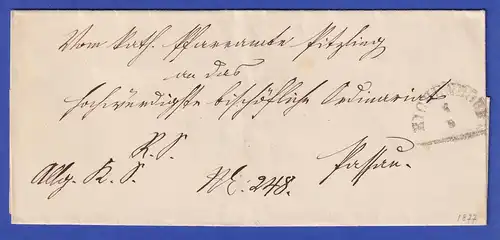 Vom kath. Pfarramte Pitzling
an das
hochwürdigste bischöfliche Ordinariat
R. S.
Allg. K. S.
N: 248.
Passau.
1877